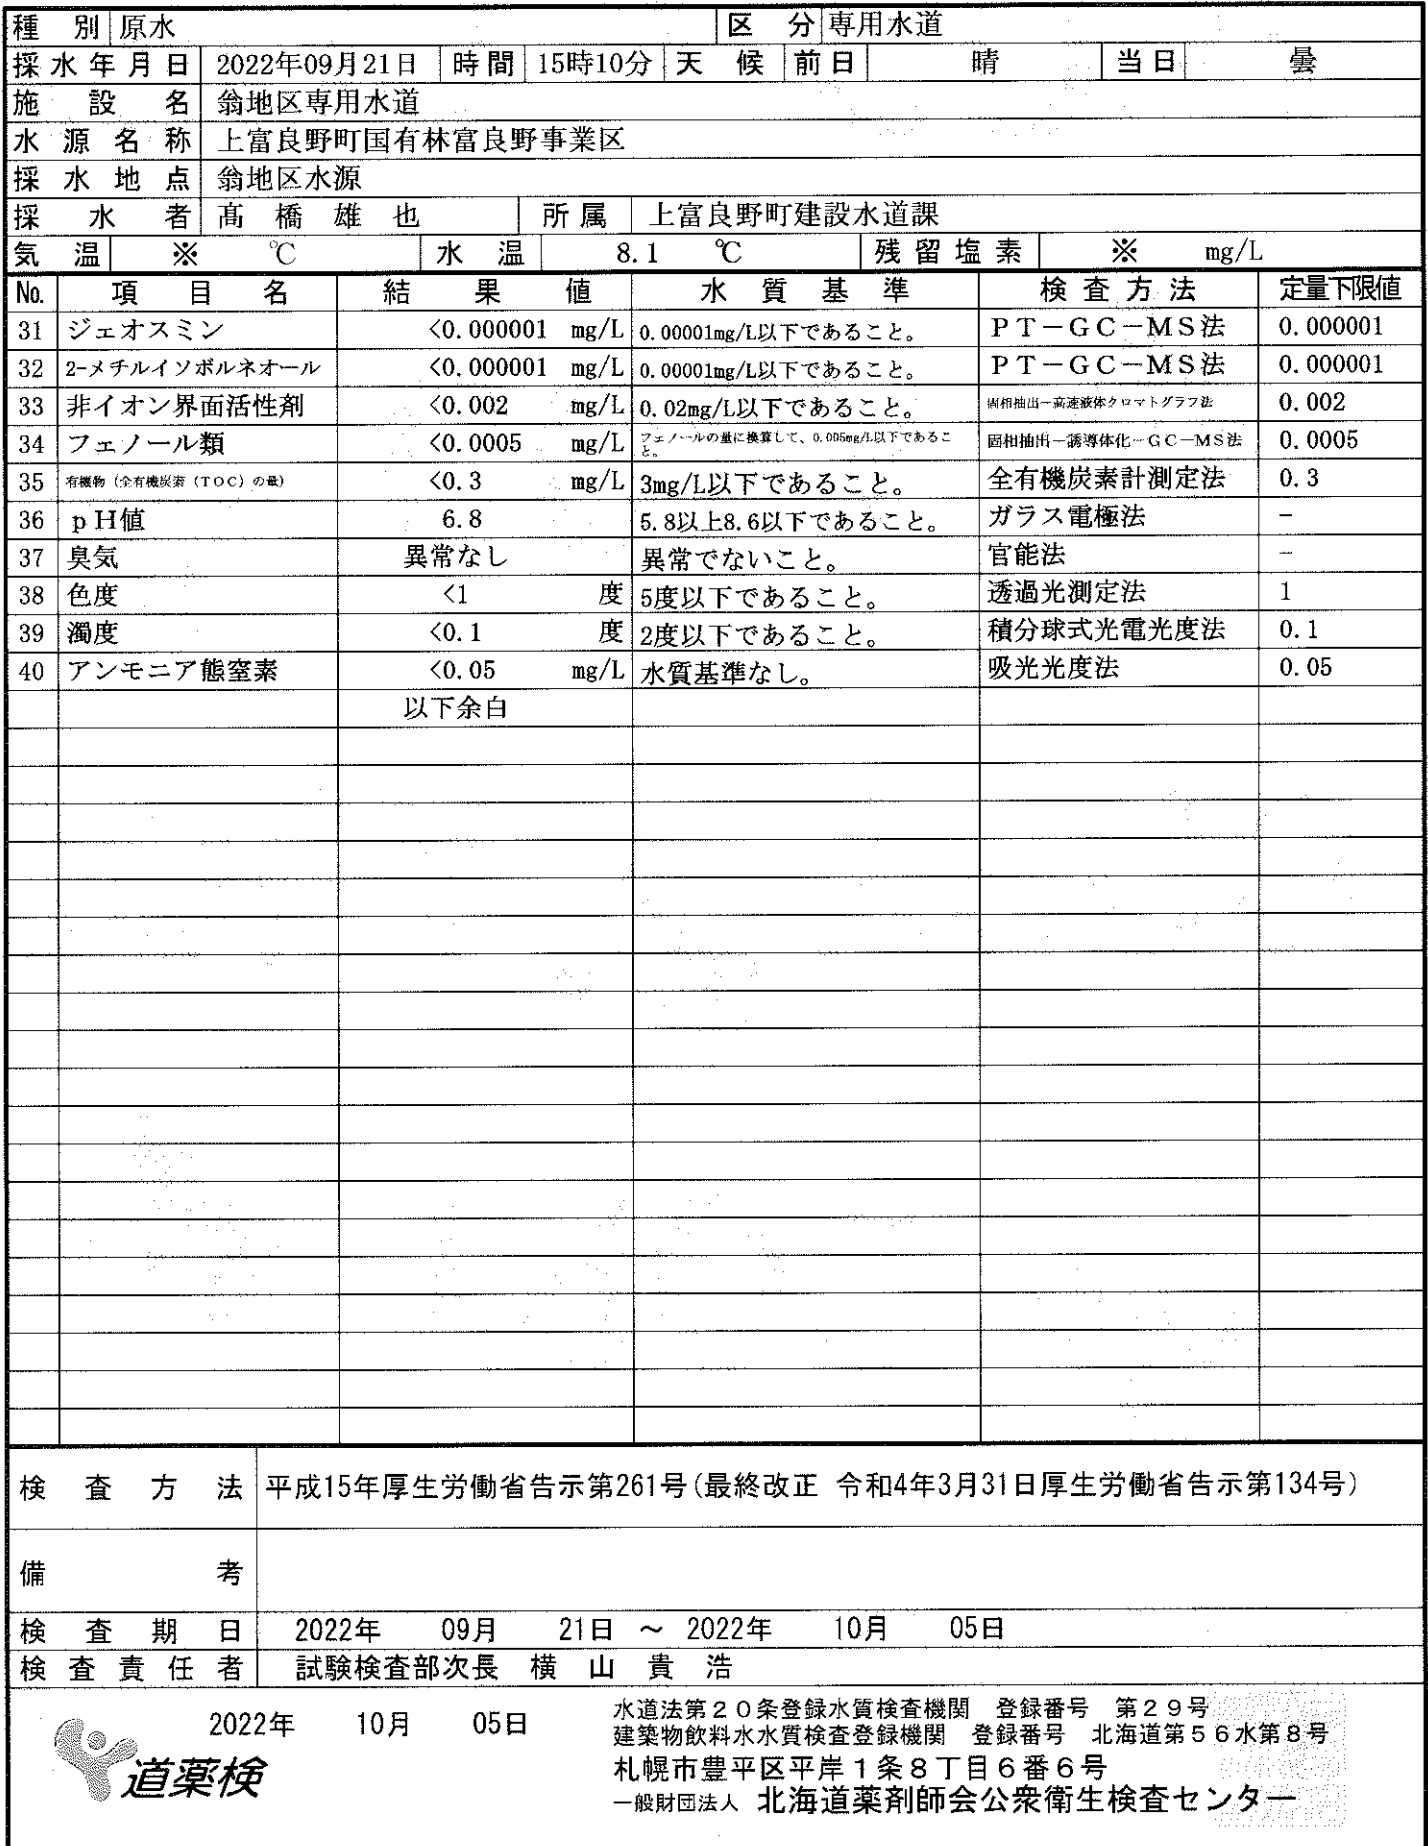 種別 原水 区分 専用水道
採水年月日 2022年09月21日 時間 15時10分 天候 前日 晴 当日 曇
施設名 翁地区専用水道
水源名称 上富良野町国有林富良野事業区
採水地点 翁地区水源
採水者 髙橋雄也 所属 上富良野町建設水道課
気温 ※ ℃ 水温 8.1 ℃ 残留塩素 ※ mg/L
No. 項目名 結果値 水質基準 検査方法 定量下限値
31 ジェオスミン <0.000001 mg/L 0.00001mg/L以下であること。 PT－GC－MS法 0.000001
32 2-メチルイソボルネオール <0.000001 mg/L 0.00001mg/L以下であること。 PT－GC－MS法 0.000001
33 非イオン界面活性剤 <0.002 mg/L 0.02mg/L以下であること。 固相抽出－高速液体クロマトグラフ法 0.002
34 フェノール類 <0.0005 mg/L フェノールの量に換算して、0.005mg/L以下であること。 固相抽出－誘導体化－GC－MS法 0.0005
35 有機物（全有機炭素（TOC）の量） <0.3 mg/L 3mg/L以下であること。 全有機炭素計測定法 0.3
36 pH値 6.8 5.8以上8.6以下であること。 ガラス電極法 －
37 臭気 異常なし 異常でないこと。 官能法 －
38 色度 <1 度 5度以下であること。 透過光測定法 1
39 濁度 <0.1 度 2度以下であること。 積分球式光電光度法 0.1
40 アンモニア態窒素 <0.05 mg/L 水質基準なし。 吸光光度法 0.05
以下余白
検査方法 平成15年厚生労働省告示第261号(最終改正 令和4年3月31日厚生労働省告示第134号)
備考
検査期日 2022年 09月 21日 ～ 2022年 10月 05日
検査責任者 試験検査部次長 横山貴浩
2022年 10月 05日
道薬検
水道法第２０条登録水質検査機関 登録番号 第２９号
建築物飲料水水質検査登録機関 登録番号 北海道第５６水第８号
札幌市豊平区平岸１条８丁目６番６号
一般財団法人 北海道薬剤師会公衆衛生検査センター